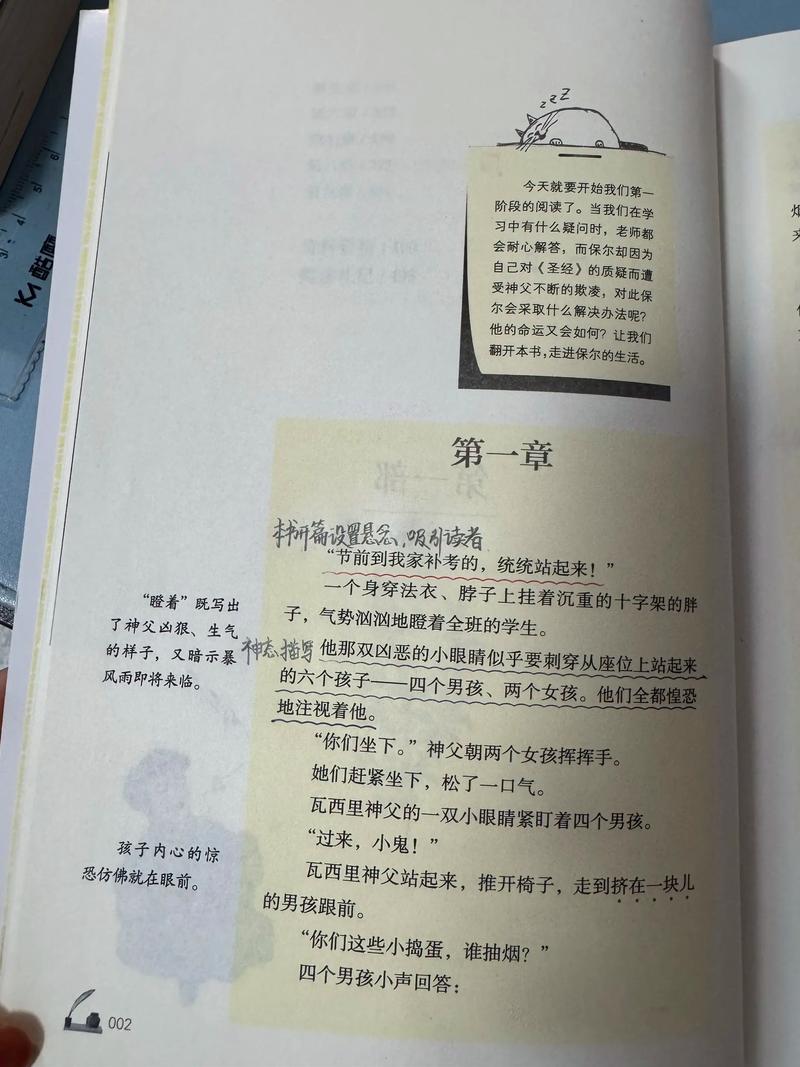 zzZ
今天就要开始我们第一
阶段的阅读了。当我们在学
习中有什么疑问时，老师都
会耐心解答，而保尔却因为
自己对《圣经》的质疑而遭
受神父不断的欺凌，对此保
尔会采取什么解决办法呢？
他的命运又会如何？让我们
翻开本书，走进保尔的生活。
第一章
本书开篇设置悬念，吸引读者
“节前到我家补考的，统统站起来！”
一个身穿法衣、脖子上挂着沉重的十字架的胖
子，气势汹汹地瞪着全班的学生。
“瞪着”既写出
了神父凶狠、生气
的样子，又暗示暴
风雨即将来临。
神态描写
他那双凶恶的小眼睛似乎要刺穿从座位上站起来
的六个孩子——四个男孩、两个女孩。他们全都惶恐
地注视着他。
“你们坐下。”神父朝两个女孩挥挥手。
她们赶紧坐下，松了一口气。
瓦西里神父的一双小眼睛紧盯着四个男孩。
“过来，小鬼！”
孩子内心的惊
恐仿佛就在眼前。
瓦西里神父站起来，推开椅子，走到挤在一块儿
的男孩跟前。
“你们这些小捣蛋，谁抽烟？”
四个男孩小声回答：
002